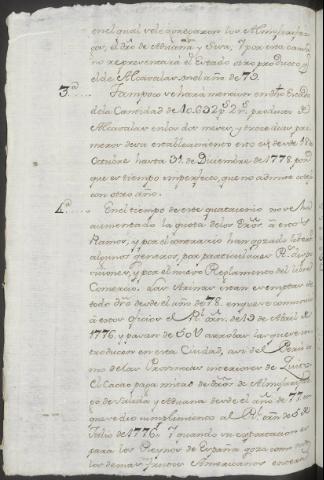 en el qual se le agregaron los Almojarifaz-
gos, el dro. de Aduana y Sisa, y por esta causa
no representará el Estado otro producto q.
el de Alcavalas en el año de 79.
3.a Tampoco se hará mencion en dho Estado
de la Cantidad de 10.632 p.s 2 r.s producto de
Alcavalas en los dos meses y trece dias pri-
meros de su establecimiento esto es, desde 18 de
Octubre hasta 31 de Diciembre de 1778, por
que es tiempo imperfecto, que no admite cotejo
con otro año.
4.a En el tiempo de este quatrienio no se ha
aumentado la quota de los dros. à estos
Ramos, y por el contrario han gozado libertad
algunos generos, por particulares R.s dispo-
siciones, y por el nuevo Reglamento del libre
Comercio. Las Arinas estan exemptas de
todo dro desde el año de 78. en que se comunicó
à estos oficios el R.l orn. de 10 de Abril de
1776, y pasan de 50 U arrobas las que se in-
troducen en esta Ciudad, asi del Perú co-
mo de las Provincias interiores de Quito.
El Cacao paga mitad de dros. de Almojarifaz-
go de salida y Aduana desde el año de 77. en
que se dio cumplimiento al R.l orn. de 5 de
Julio de 1776. Y quando su extraccion es
para los Reynos de España goza como
los demas frutos Americanos entera